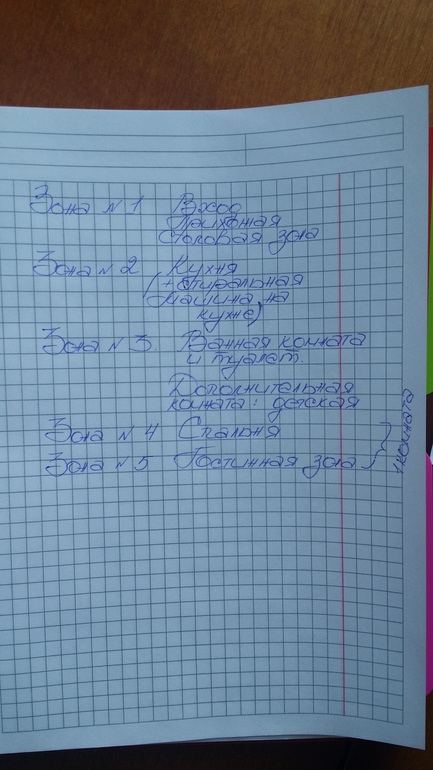 Зона №1 Вход
Прихожая
Столовая зона
Зона №2 Кухня
(+ стиральная
машина на
кухне)
Зона №3 Ванная комната
и туалет
Дополнительная
комната: детская
Зона №4 Спальня
Зона №5 Гостинная зона
1 комната